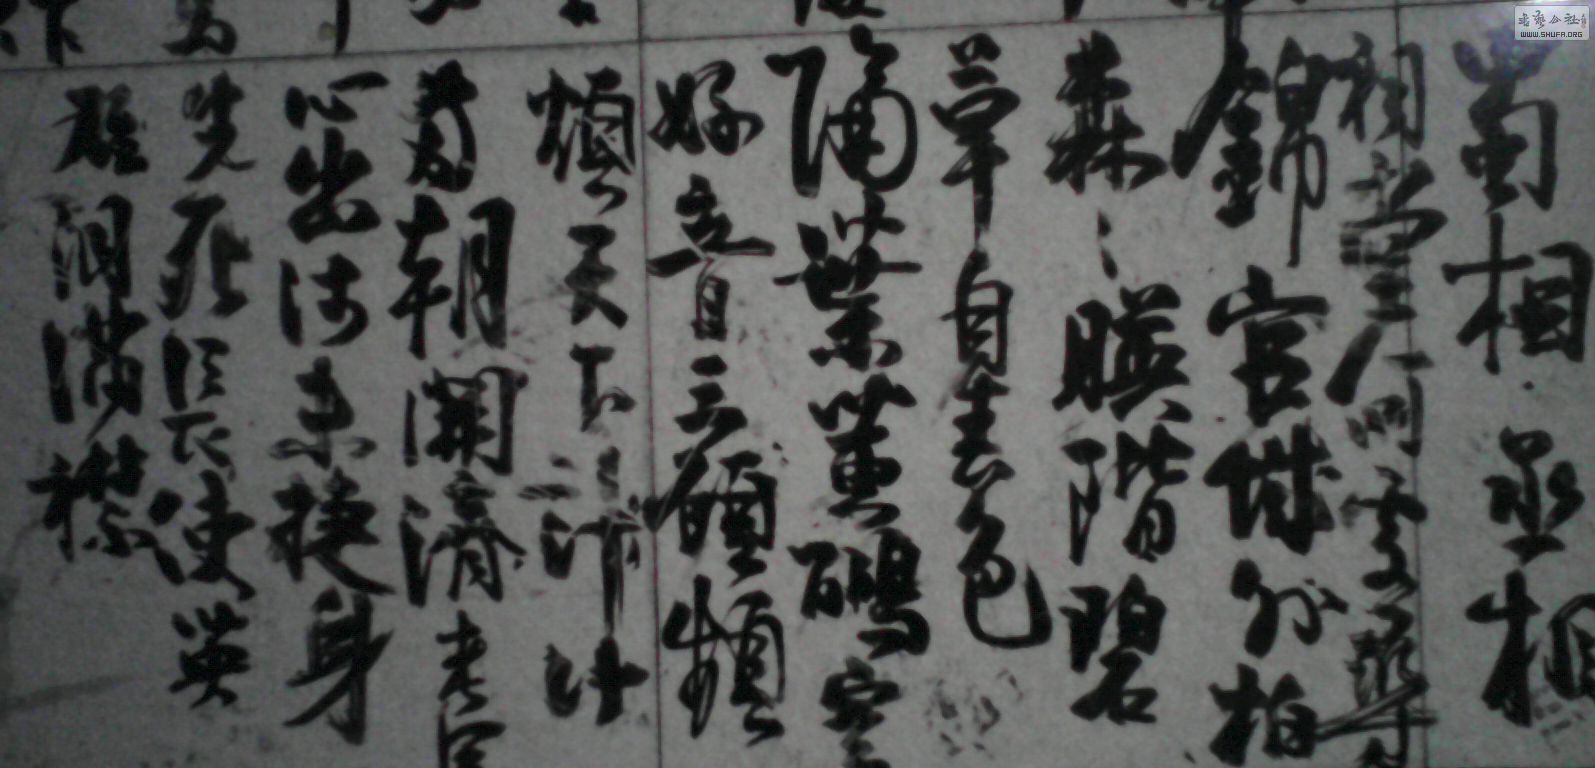 蜀相丞相
相堂何處尋
錦官城外柏
森〻映階碧
草自春色
隔葉黃鸝空
好音三顧頻
煩天下計
計
两朝開濟老臣
心出師未捷身
先死長使英
雄淚滿襟
WWW.SHUFA.ORG